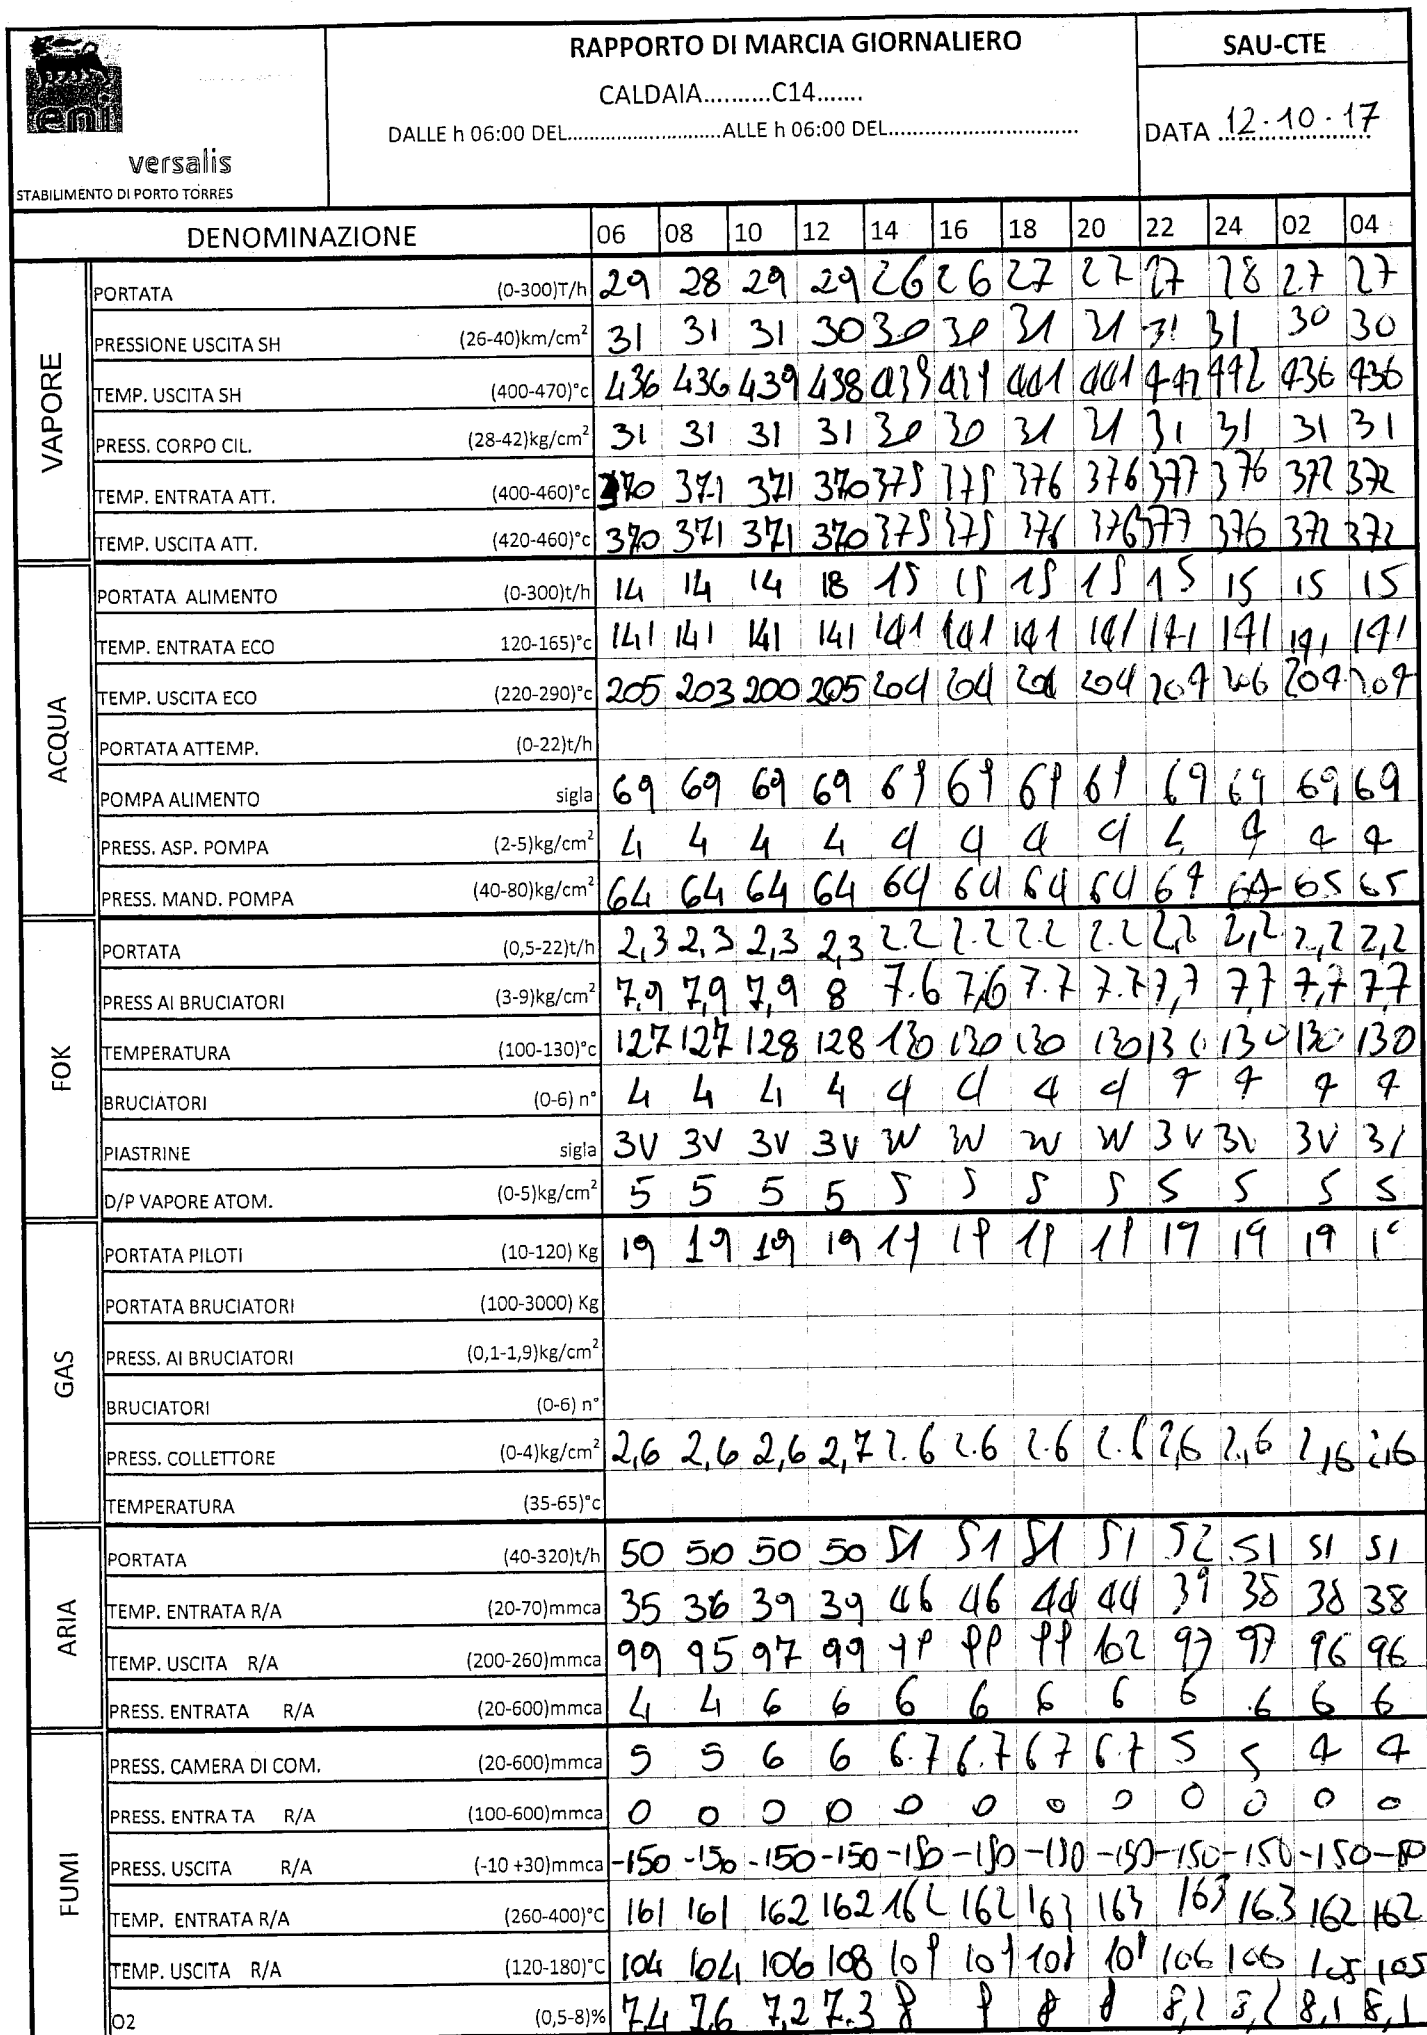 RAPPORTO DI MARCIA GIORNALIERO
SAU-CTE
CALDAIA..........C14.......
DALLE h 06:00 DEL............................ALLE h 06:00 DEL..............................
DATA 12.10.17
eni
versalis
STABILIMENTO DI PORTO TORRES
DENOMINAZIONE 06 08 10 12 14 16 18 20 22 24 02 04
VAPORE
PORTATA (0-300)T/h 29 28 29 29 26 26 27 27 27 28 27 27
PRESSIONE USCITA SH (26-40)km/cm² 31 31 31 30 30 30 31 31 31 31 30 30
TEMP. USCITA SH (400-470)°c 436 436 439 438 439 439 441 441 442 436 436
PRESS. CORPO CIL. (28-42)kg/cm² 31 31 31 31 30 30 31 31 31 31 31 31
TEMP. ENTRATA ATT. (400-460)°c 370 371 371 370 375 375 376 376 377 376 372 372
TEMP. USCITA ATT. (420-460)°c 370 371 371 370 375 375 376 376 377 376 372 372
ACQUA
PORTATA ALIMENTO (0-300)t/h 14 14 14 18 15 15 15 15 15 15 15 15
TEMP. ENTRATA ECO 120-165)°c 141 141 141 141 141 141 141 141 141 141 141 141
TEMP. USCITA ECO (220-290)°c 205 203 200 205 204 204 204 204 204 206 204 204
PORTATA ATTEMP. (0-22)t/h
POMPA ALIMENTO sigla 69 69 69 69 69 69 69 69 69 69 69 69
PRESS. ASP. POMPA (2-5)kg/cm² 4 4 4 4 4 4 4 4 4 4 4 4
PRESS. MAND. POMPA (40-80)kg/cm² 64 64 64 64 64 64 64 64 64 64 65 65
FOK
PORTATA (0,5-22)t/h 2,3 2,3 2,3 2,3 2.2 2.2 2.2 2.2 2,2 2,2 2,2 2,2
PRESS AI BRUCIATORI (3-9)kg/cm² 7,9 7,9 7,9 8 7.6 7,6 7.7 7.7 7,7 7,7 7,7 7,7
TEMPERATURA (100-130)°c 127 127 128 128 130 130 130 130 130 130 130 130
BRUCIATORI (0-6) n° 4 4 4 4 4 4 4 4 4 4 4 4
PIASTRINE sigla 3V 3V 3V 3V 3V 3V 3V 3V 3V 3V 3V
D/P VAPORE ATOM. (0-5)kg/cm² 5 5 5 5 5 5 5 5 5 5 5 5
GAS
PORTATA PILOTI (10-120) Kg 19 19 19 19 19 19 19 19 19 19 19
PORTATA BRUCIATORI (100-3000) Kg
PRESS. AI BRUCIATORI (0,1-1,9)kg/cm²
BRUCIATORI (0-6) n°
PRESS. COLLETTORE (0-4)kg/cm² 2,6 2,6 2,6 2,7 2.6 2.6 2.6 2.6 2,6 2,6 2,6 2,6
TEMPERATURA (35-65)°c
ARIA
PORTATA (40-320)t/h 50 50 50 50 51 51 51 51 52 51 51 51
TEMP. ENTRATA R/A (20-70)mmca 35 36 39 39 46 46 44 44 39 38 38 38
TEMP. USCITA R/A (200-260)mmca 99 95 97 99 99 99 99 102 97 97 96 96
PRESS. ENTRATA R/A (20-600)mmca 4 4 6 6 6 6 6 6 6 6 6 6
FUMI
PRESS. CAMERA DI COM. (20-600)mmca 5 5 6 6 6.7 6.7 6.7 6.7 5 5 4 4
PRESS. ENTRATA R/A (100-600)mmca 0 0 0 0 0 0 0 0 0 0 0 0
PRESS. USCITA R/A (-10 +30)mmca -150 -150 -150 -150 -150 -150 -150 -150 -150 -150 -150 -150
TEMP. ENTRATA R/A (260-400)°C 161 161 162 162 162 162 163 163 163 163 162 162
TEMP. USCITA R/A (120-180)°C 104 104 106 108 109 109 106 106 105 105
O2 (0,5-8)% 7.4 7.6 7,2 7.3 8 8 8 8 8,1 8,1 8,1